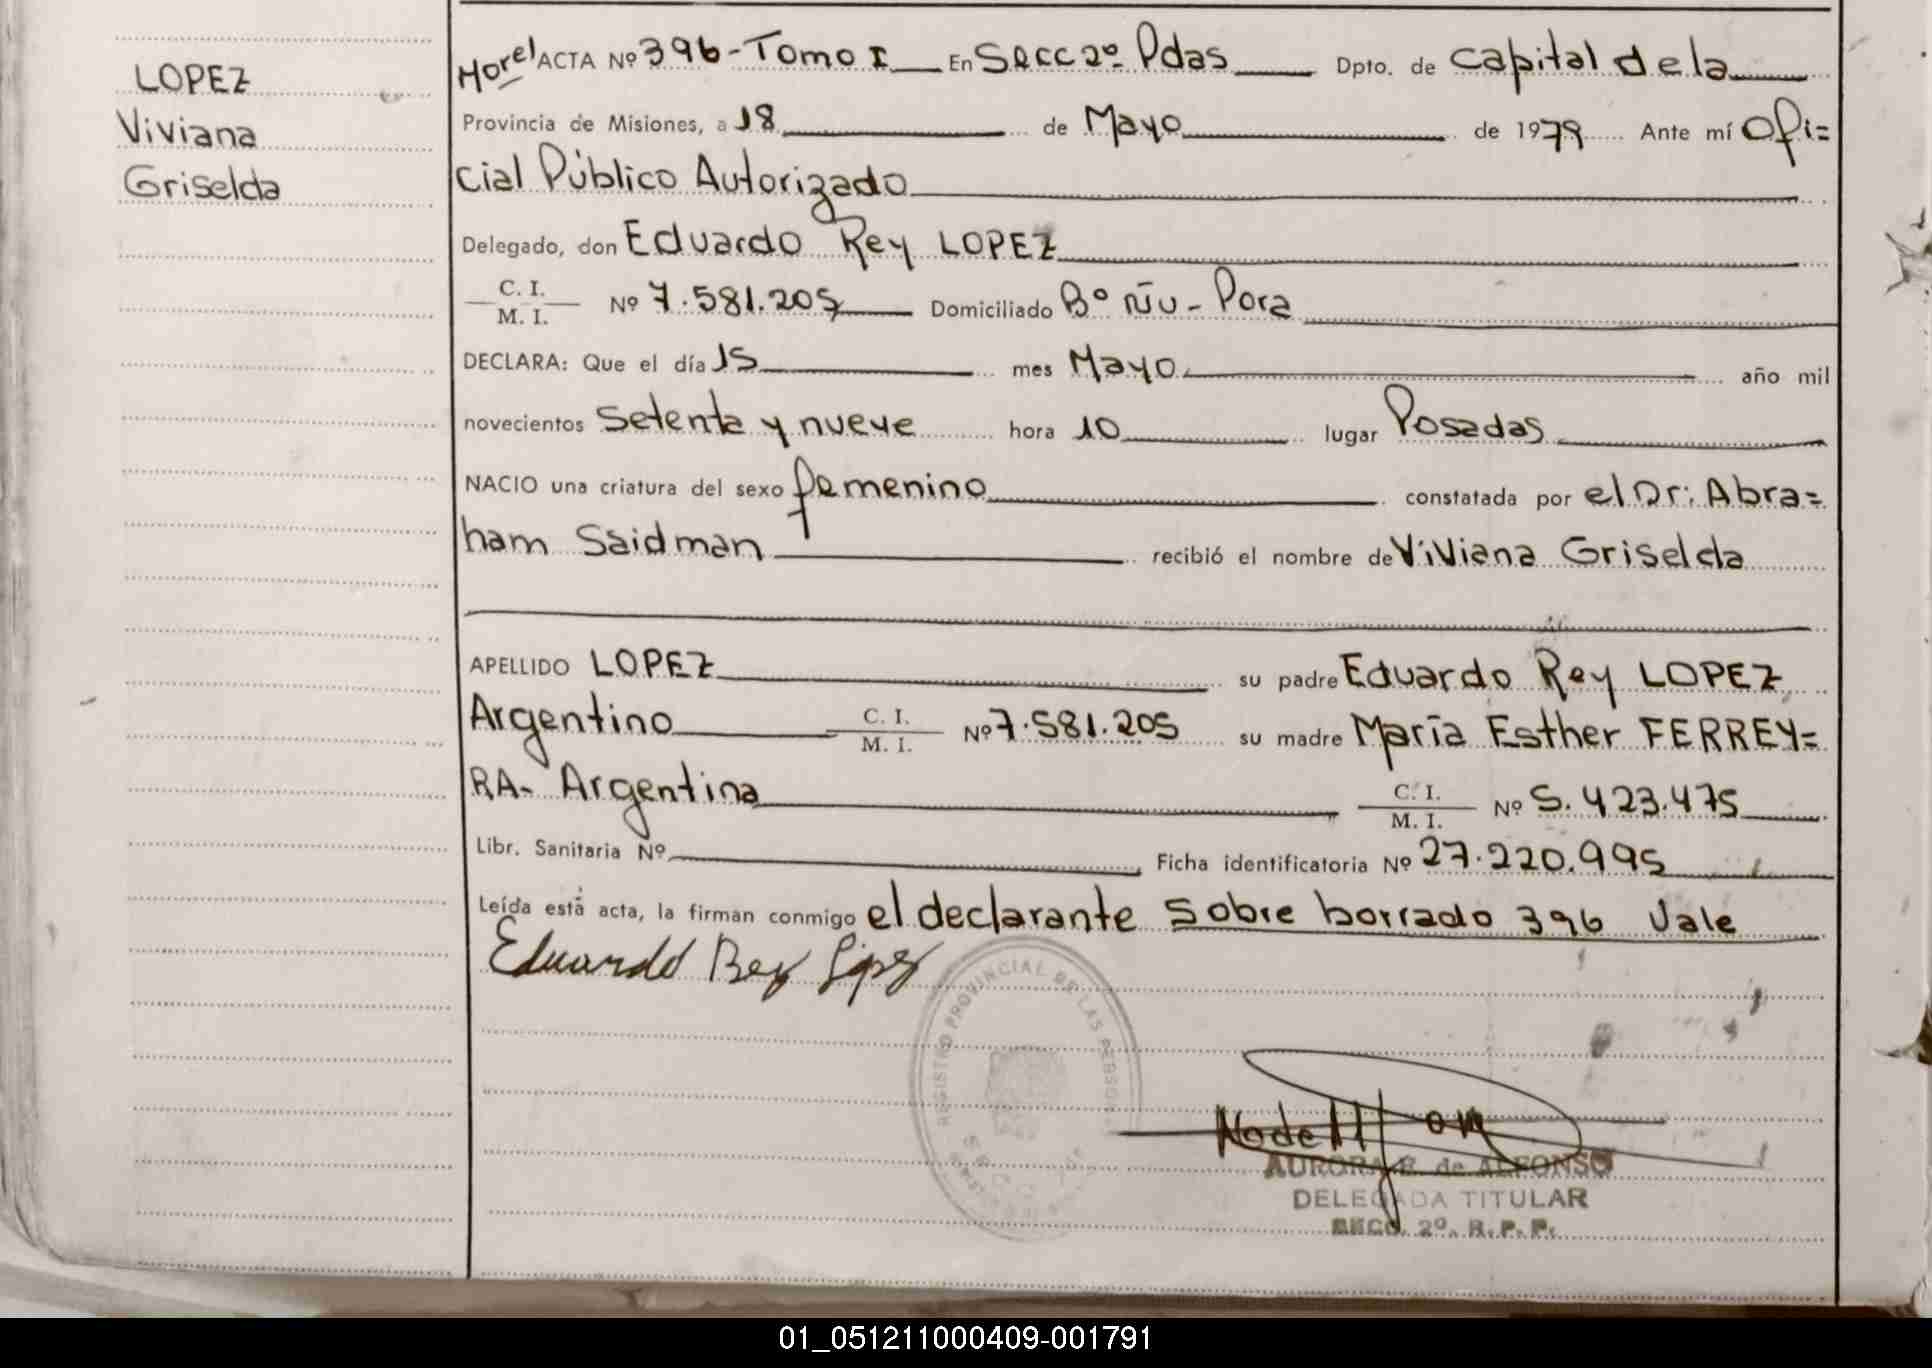 LOPEZ
Viviana
Griselda
ACTA Nº 396-Tomo I En Secc 2º Pdas Dpto. de Capital de la
Provincia de Misiones, a 18 de Mayo de 1979 Ante mí Ofi=
cial Público Autorizado
Delegado, don Eduardo Rey LOPEZ
C. I.
M. I. Nº 7.581.205 Domiciliado Bº Ñu-Pora
DECLARA: Que el día 15 mes Mayo año mil
novecientos setenta y nueve hora 10 lugar Posadas
NACIO una criatura del sexo femenino constatada por el Dr: Abra=
ham Saidman recibió el nombre de Viviana Griselda
APELLIDO LOPEZ su padre Eduardo Rey LOPEZ
Argentino C. I. M. I. Nº 7.581.205 su madre María Esther FERREY=
RA- Argentina C. I. M. I. Nº 5.423.475
Libr. Sanitaria Nº Ficha identificatoria Nº 27.220.995
Leída está acta, la firman conmigo el declarante sobre borrado 396 Vale
Eduardo Rey López
REGISTRO PROVINCIAL DE LAS PERSONAS
AURORA R. de ALFONSO
DELEGADA TITULAR
SECC. 2º. R. P. P.
01_051211000409-001791